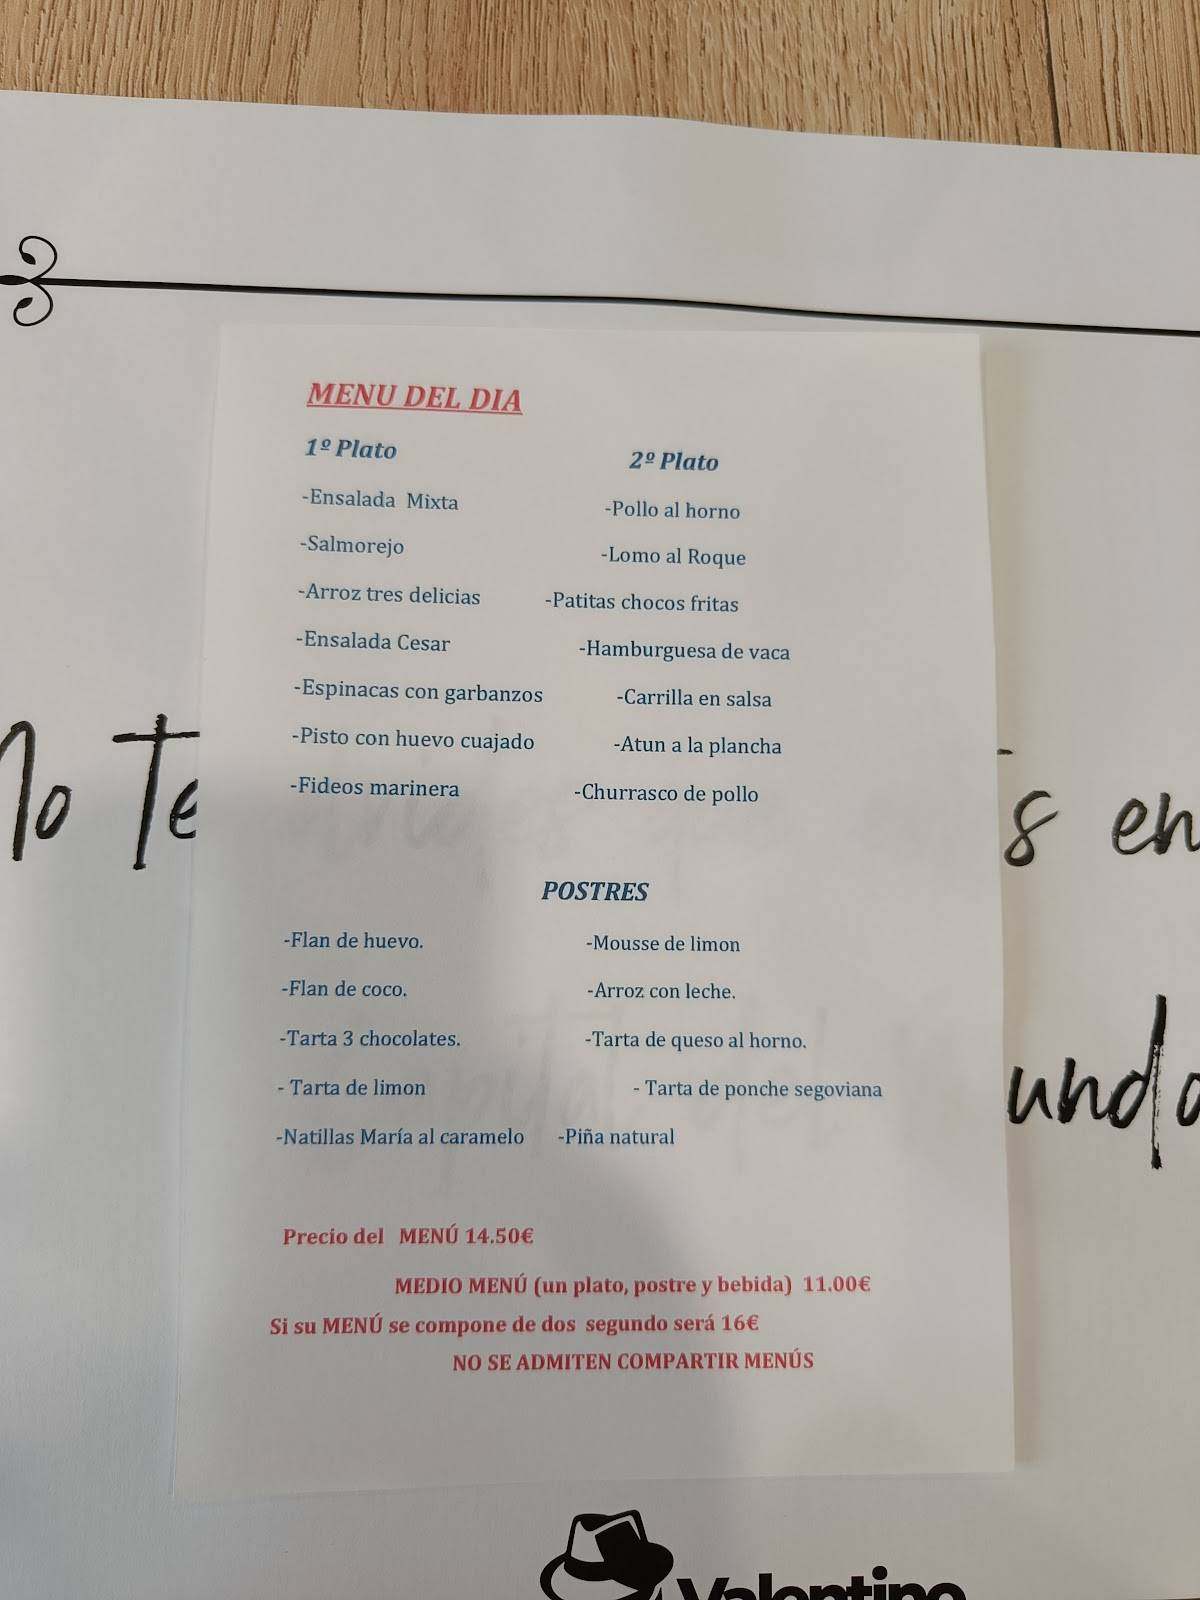 MENU DEL DIA
1º Plato 2º Plato
-Ensalada Mixta -Pollo al horno
-Salmorejo -Lomo al Roque
-Arroz tres delicias -Patitas chocos fritas
-Ensalada Cesar -Hamburguesa de vaca
-Espinacas con garbanzos -Carrilla en salsa
-Pisto con huevo cuajado -Atun a la plancha
-Fideos marinera -Churrasco de pollo
POSTRES
-Flan de huevo. -Mousse de limon
-Flan de coco. -Arroz con leche.
-Tarta 3 chocolates. -Tarta de queso al horno.
- Tarta de limon - Tarta de ponche segoviana
-Natillas María al caramelo -Piña natural
Precio del MENÚ 14.50€
MEDIO MENÚ (un plato, postre y bebida) 11.00€
Si su MENÚ se compone de dos segundo será 16€
NO SE ADMITEN COMPARTIR MENÚS
No te s en
undo
Valentino